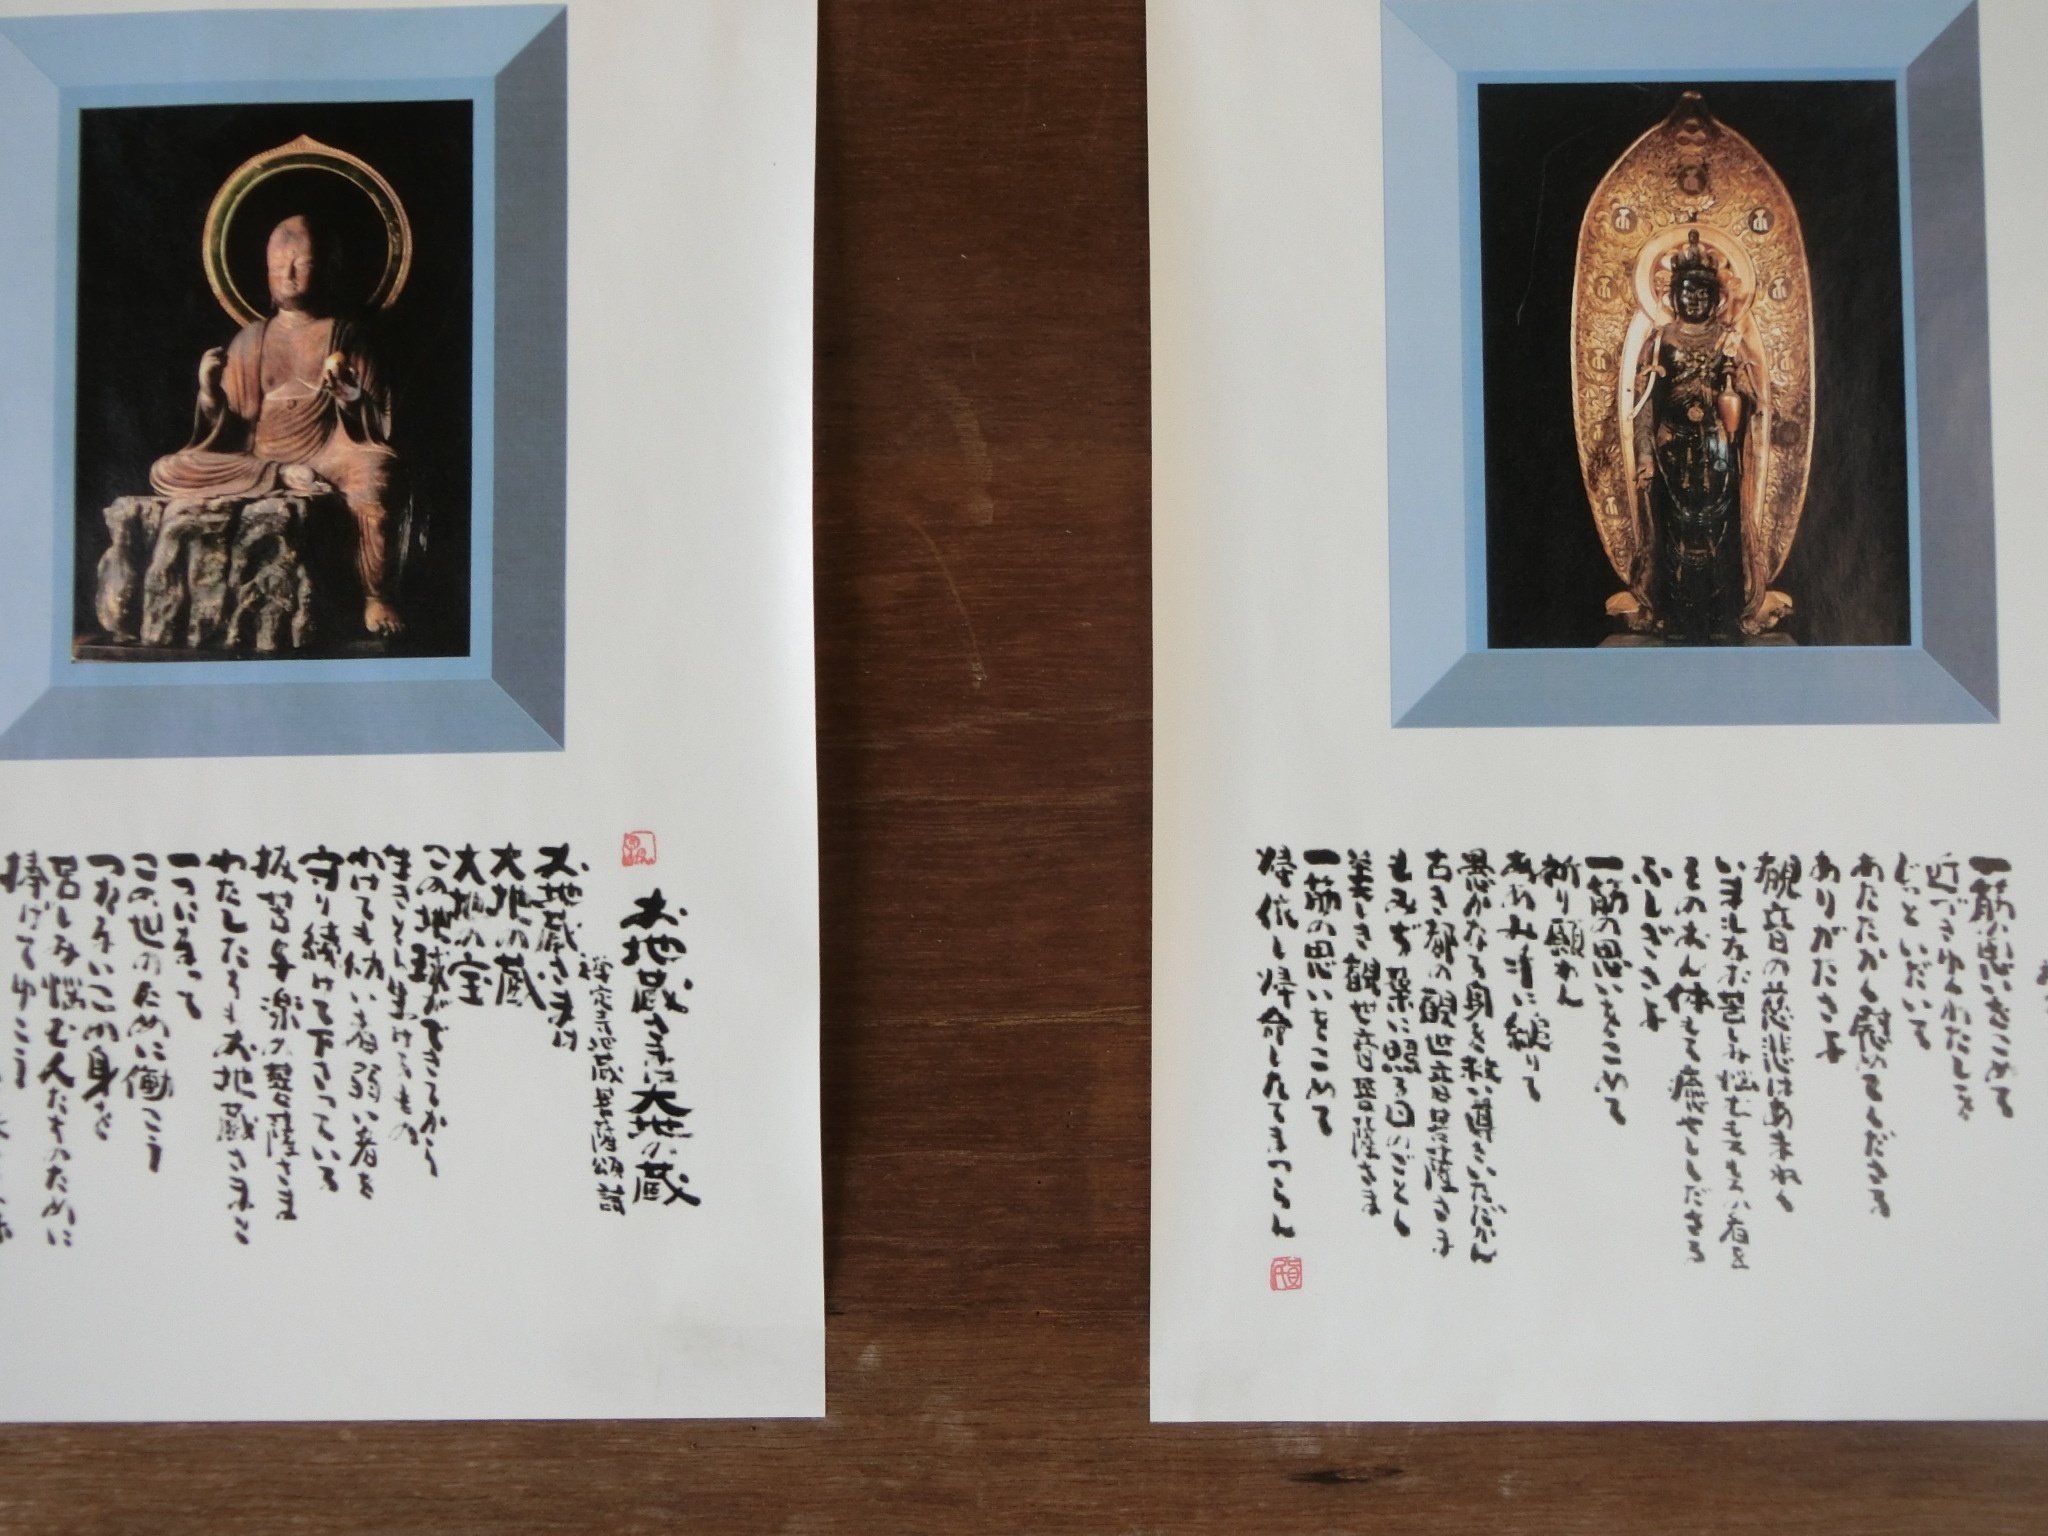 一筋の思いをこめて
近づきゆくわたしを
じっといだいて
あたたかく慰めてくださる
ありがたさよ
観音の慈悲はあまねく
いましなお苦しみ悩む
そのおん体もて癒やしくださる
ふしぎさよ
一筋の思いをこめて
祈り願わん
ああみ清に縋りて
愚かなる身を救い導きいただかん
古き都の観世音菩薩さま
もみぢ葉に照る日のごとく
美しき観世音菩薩さま
一筋の思いをこめて
帰依し帰命したてまつらん
お地蔵さまは大地の蔵
禅定寺地蔵菩薩頌詩
お地蔵さまは
大地の蔵
大地の宝
この地球ができてから
生きとし生けるもの
わけても幼い者弱い者を
守り続けて下さっている
抜苦与楽の菩薩さま
わたしたちもお地蔵さまと
一つになって
この世のために働こう
つたないこの身を
苦しみ悩む人たちのために
捧げてゆこう